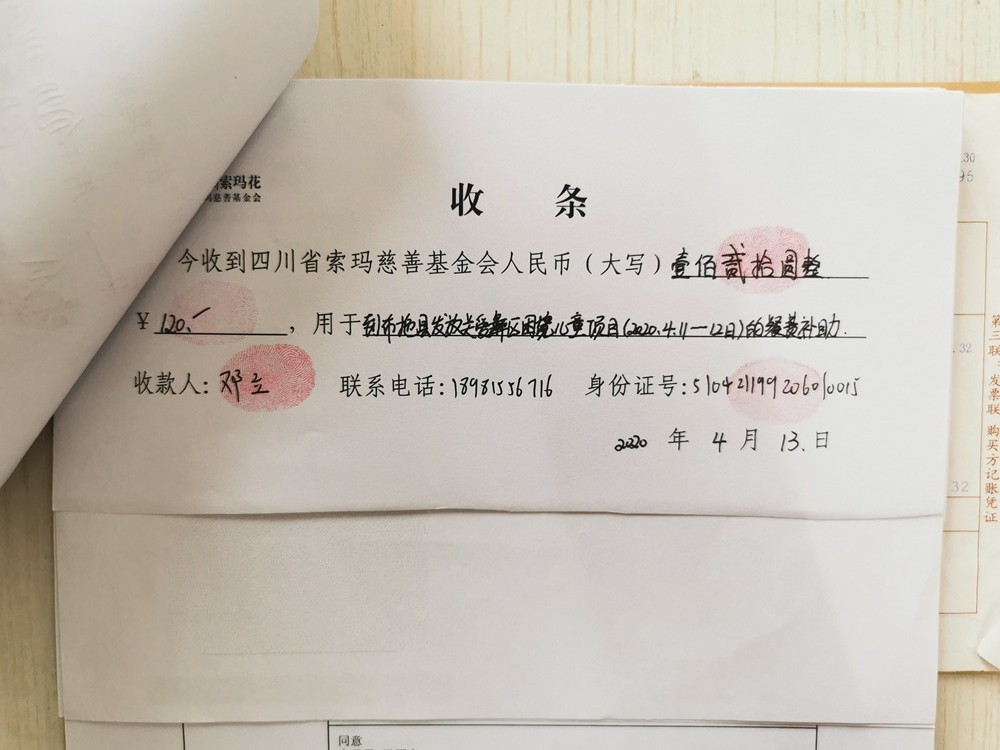 索玛花
慈善基金会
收 条
今收到四川省索玛慈善基金会人民币（大写）壹佰贰拾圆整
¥ 120.- ，用于到布拖县发放关爱彝区困境儿童项目(2020.4.11—12日)的餐费补助.
收款人：邓立 联系电话：13981556716 身份证号：510421199206010015
2020 年 4 月 13.日
.30
95
.32
32
第三联：发票联 购买方记账凭证
同意